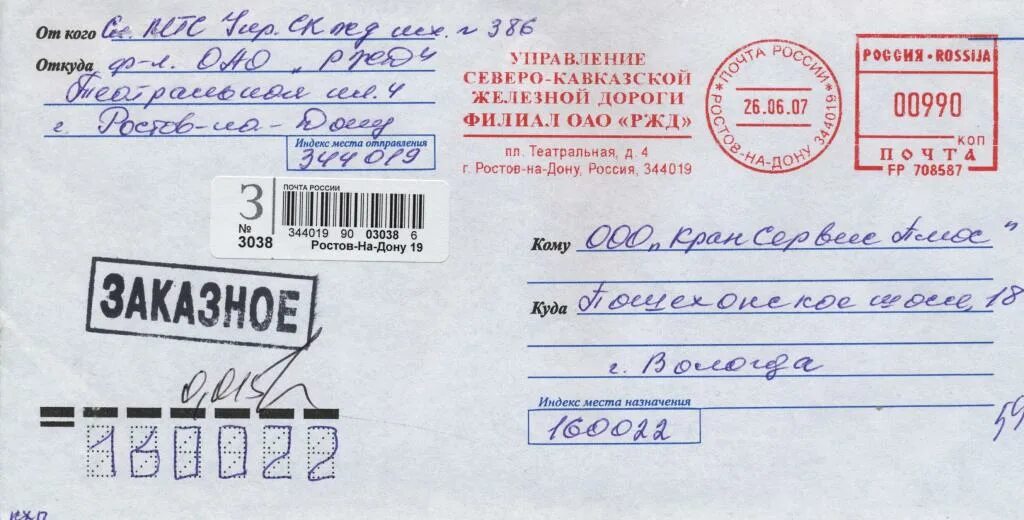 От кого Сл. МТС Упр. СК жд исх. № 386
Откуда ф-л. ОАО "РЖД"
Театральная пл. 4
г. Ростов-на-Дону
Индекс места отправления
344019
УПРАВЛЕНИЕ
СЕВЕРО-КАВКАЗСКОЙ
ЖЕЛЕЗНОЙ ДОРОГИ
ФИЛИАЛ ОАО «РЖД»
пл. Театральная, д. 4
г. Ростов-на-Дону, Россия, 344019
*ПОЧТА РОССИИ*
26.06.07
РОСТОВ-НА-ДОНУ 344019
РОССИЯ · ROSSIJA
00990
КОП
ПОЧТА
FP 708587
З
№
3038
ПОЧТА РОССИИ
344019 90 03038 6
Ростов-На-Дону 19
ЗАКАЗНОЕ
0,015
Кому ООО "Кран Сервис Плюс"
Куда Пошехонское шоссе, 18
г. Вологда
Индекс места назначения
160022
160022